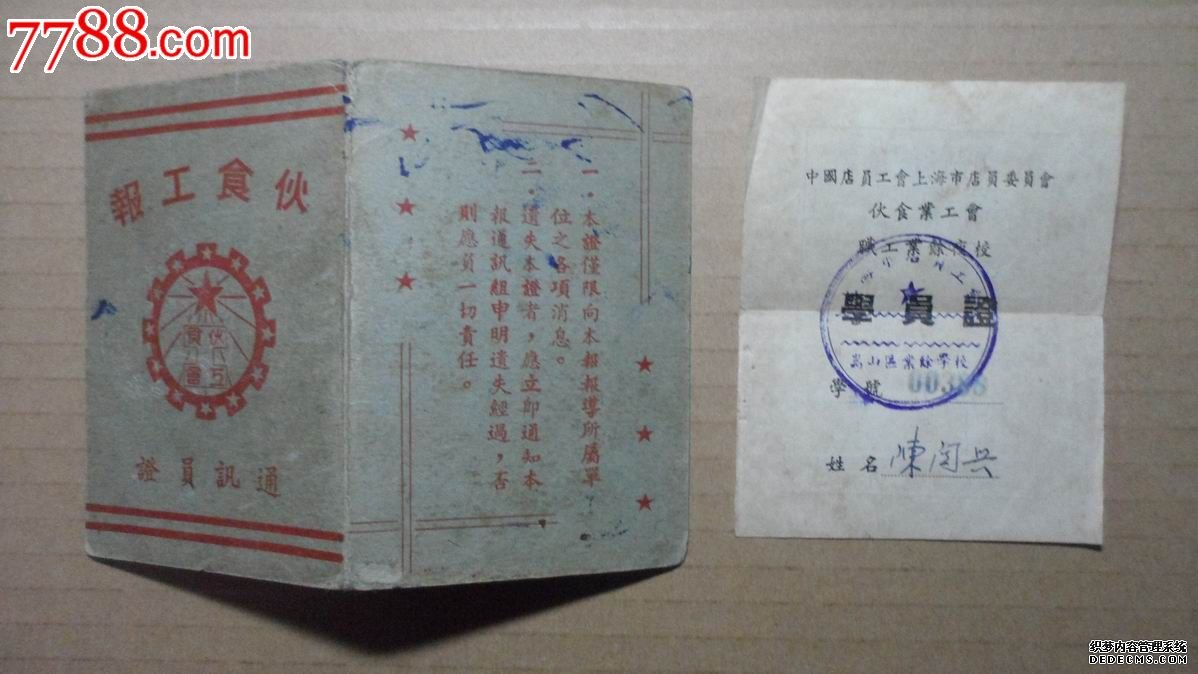 7788.com
伙食工報
通訊員證
一．本證僅限向本報報導所屬單
位之各項消息。
二．遺失本證者，應立即通知本
報通訊組申明遺失經過，否
則應負一切責任。
中國店員工會上海市店員委員會
伙食業工會
職工業餘夜校
學員證
嵩山區業餘學校
學號
姓名 陳
织梦内容管理系统
DEDECMS.COM